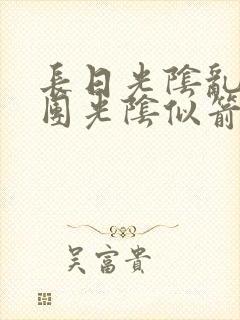 長日光陰亂
團光陰似箭
吳富貴